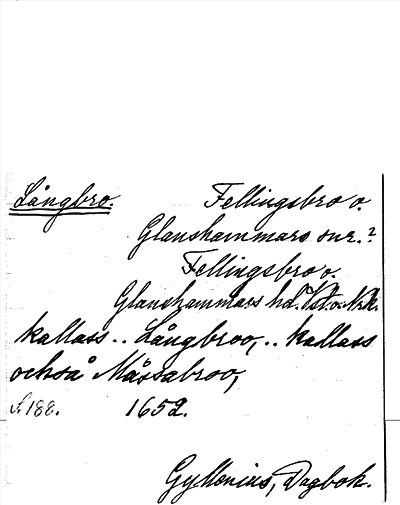 Långbro. Fellingsbro o.
Glanshammars snr.?
Fellingsbro o.
Glanshammars hd.
kallass .. Långbroo, .. kallass
också Måssabroo,
s. 188. 1652.
Gyllenius, Dagbok.